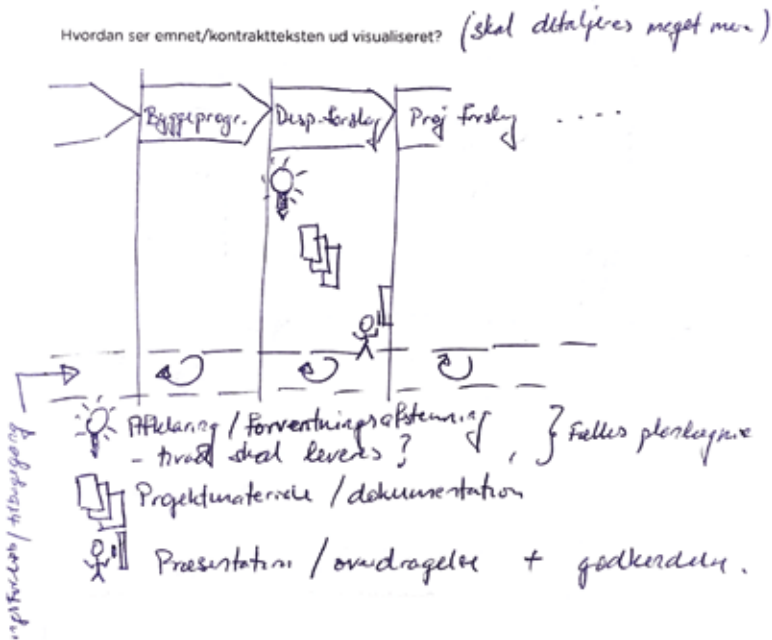 Hvordan ser emnet/kontraktteksten ud visualiseret? (skal detaljeres meget mere)
Byggeprogr. Disp. forslag Proj forslag ....
Afklaring / forventningsafstemning
- hvad skal leveres? } Fælles
Projektmateriale / dokumentation
Præsentation / overdragelse + godkendelse.